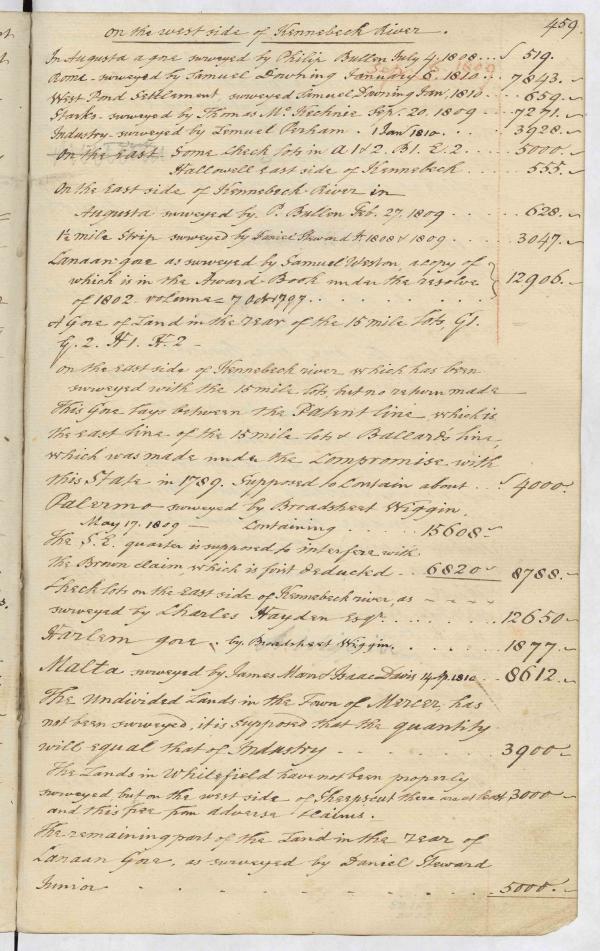 459.
On the west side of Kennebeck River.
In Augusta a gore surveyed by Philip Bullen July 4. 1808 . . . 519.
Sept. 6. 1809
Rome - surveyed by Samuel Downing January 6. 1810 . . 7843.
West Pond Settlement surveyed Samuel Downing Jan. 1810 . . 659.
Starks - surveyed by Thomas Mc Kechnie Sep. 20. 1809 . . 7271.
Industry surveyed by Lemuel Perham. 1 Jan 1810. . . . 3928.
On the East Some Check lots in A 1 & 2. B 1. E. 2 . . . . 5000.
Hallowell east side of Kennebeck . . . . 555.
On the East side of Kennebeck River in
Augusta surveyed by P. Bullen Feb. 27. 1809 . . . . 628.
1½ mile Strip surveyed by Daniel Steward Jr. 1808 & 1809 . . . . 3047.
Canaan gore as surveyed by Samuel Weston a copy of
which is in the Award Book under the resolve } 12906.
of 1802. volume 7 Oct 1797. . . . . . .
A Gore of Land in the rear of the 15 mile lots, G 1.
G. 2. H 1. H. 2 -
on the east side of Kennebeck river which has been
surveyed with the 15 mile lots, but no return made
This Gore lays between the Patent line which is
the east line of the 15 mile lots & Ballard's line,
which was made under the Compromise with
this State in 1789. Supposed to Contain about . . 4000.
Palermo surveyed by Broadstreet Wiggin.
May 17. 1809 - Containing . . . . 15608
The S. E. quarter is supposed to interfere with
the Brown claim, which is first deducted . . 6820 8788.
Check lots on the east side of Kennebeck river, as - - - -
surveyed by Charles Hayden Esqr. . . . . . 12650
Harlem gore. by Broadstreet Wiggin. . . . . . 1877.
Malta surveyed by James Mann & Isaac Davis 1810 . . 8612.
The undivided Lands in the Town of Mercer, has
not been surveyed, it is supposed that the quantity
will equal that of Industry . . . . . 3900
The Lands in Whitefield have not been properly
surveyed but on the west side of Sheepscut there are at least 3000
and this free from adverse claims.
The remaining part of the Land in the rear of
Canaan Gore, as surveyed by Daniel Steward
Junior . . . . . . . . 5000.